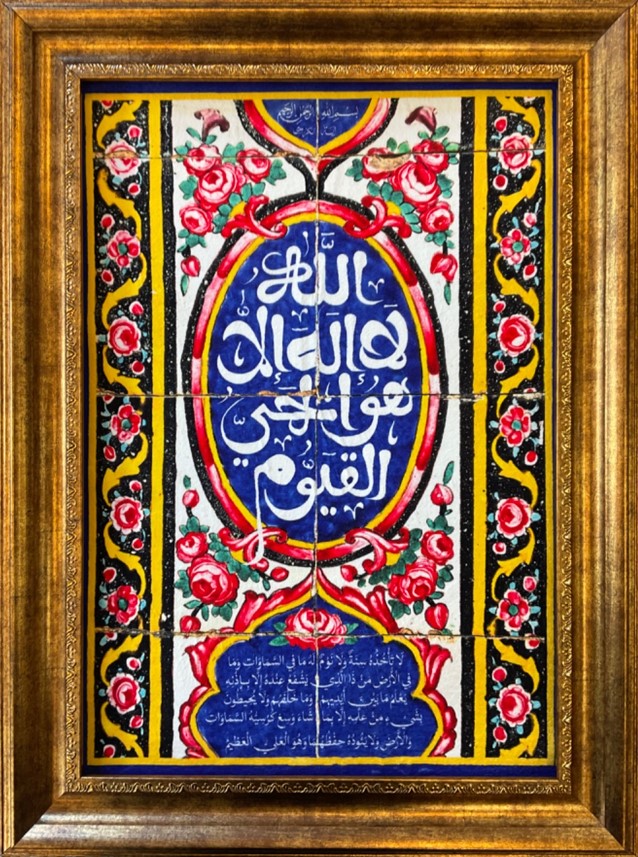 بسم الله الرحمن الرحيم
اللّٰه
لَا اله الّا
هُو الحَيّ
القيّوم
لا تأخذه سنة ولا نوم له ما في السماوات وما
في الأرض من ذا الذي يشفع عنده إلا بإذنه
يعلم ما بين أيديهم وما خلفهم ولا يحيطون
بشيء من علمه إلا بما شاء وسع كرسيه السماوات
والأرض ولا يئوده حفظهما وهو العلي العظيم